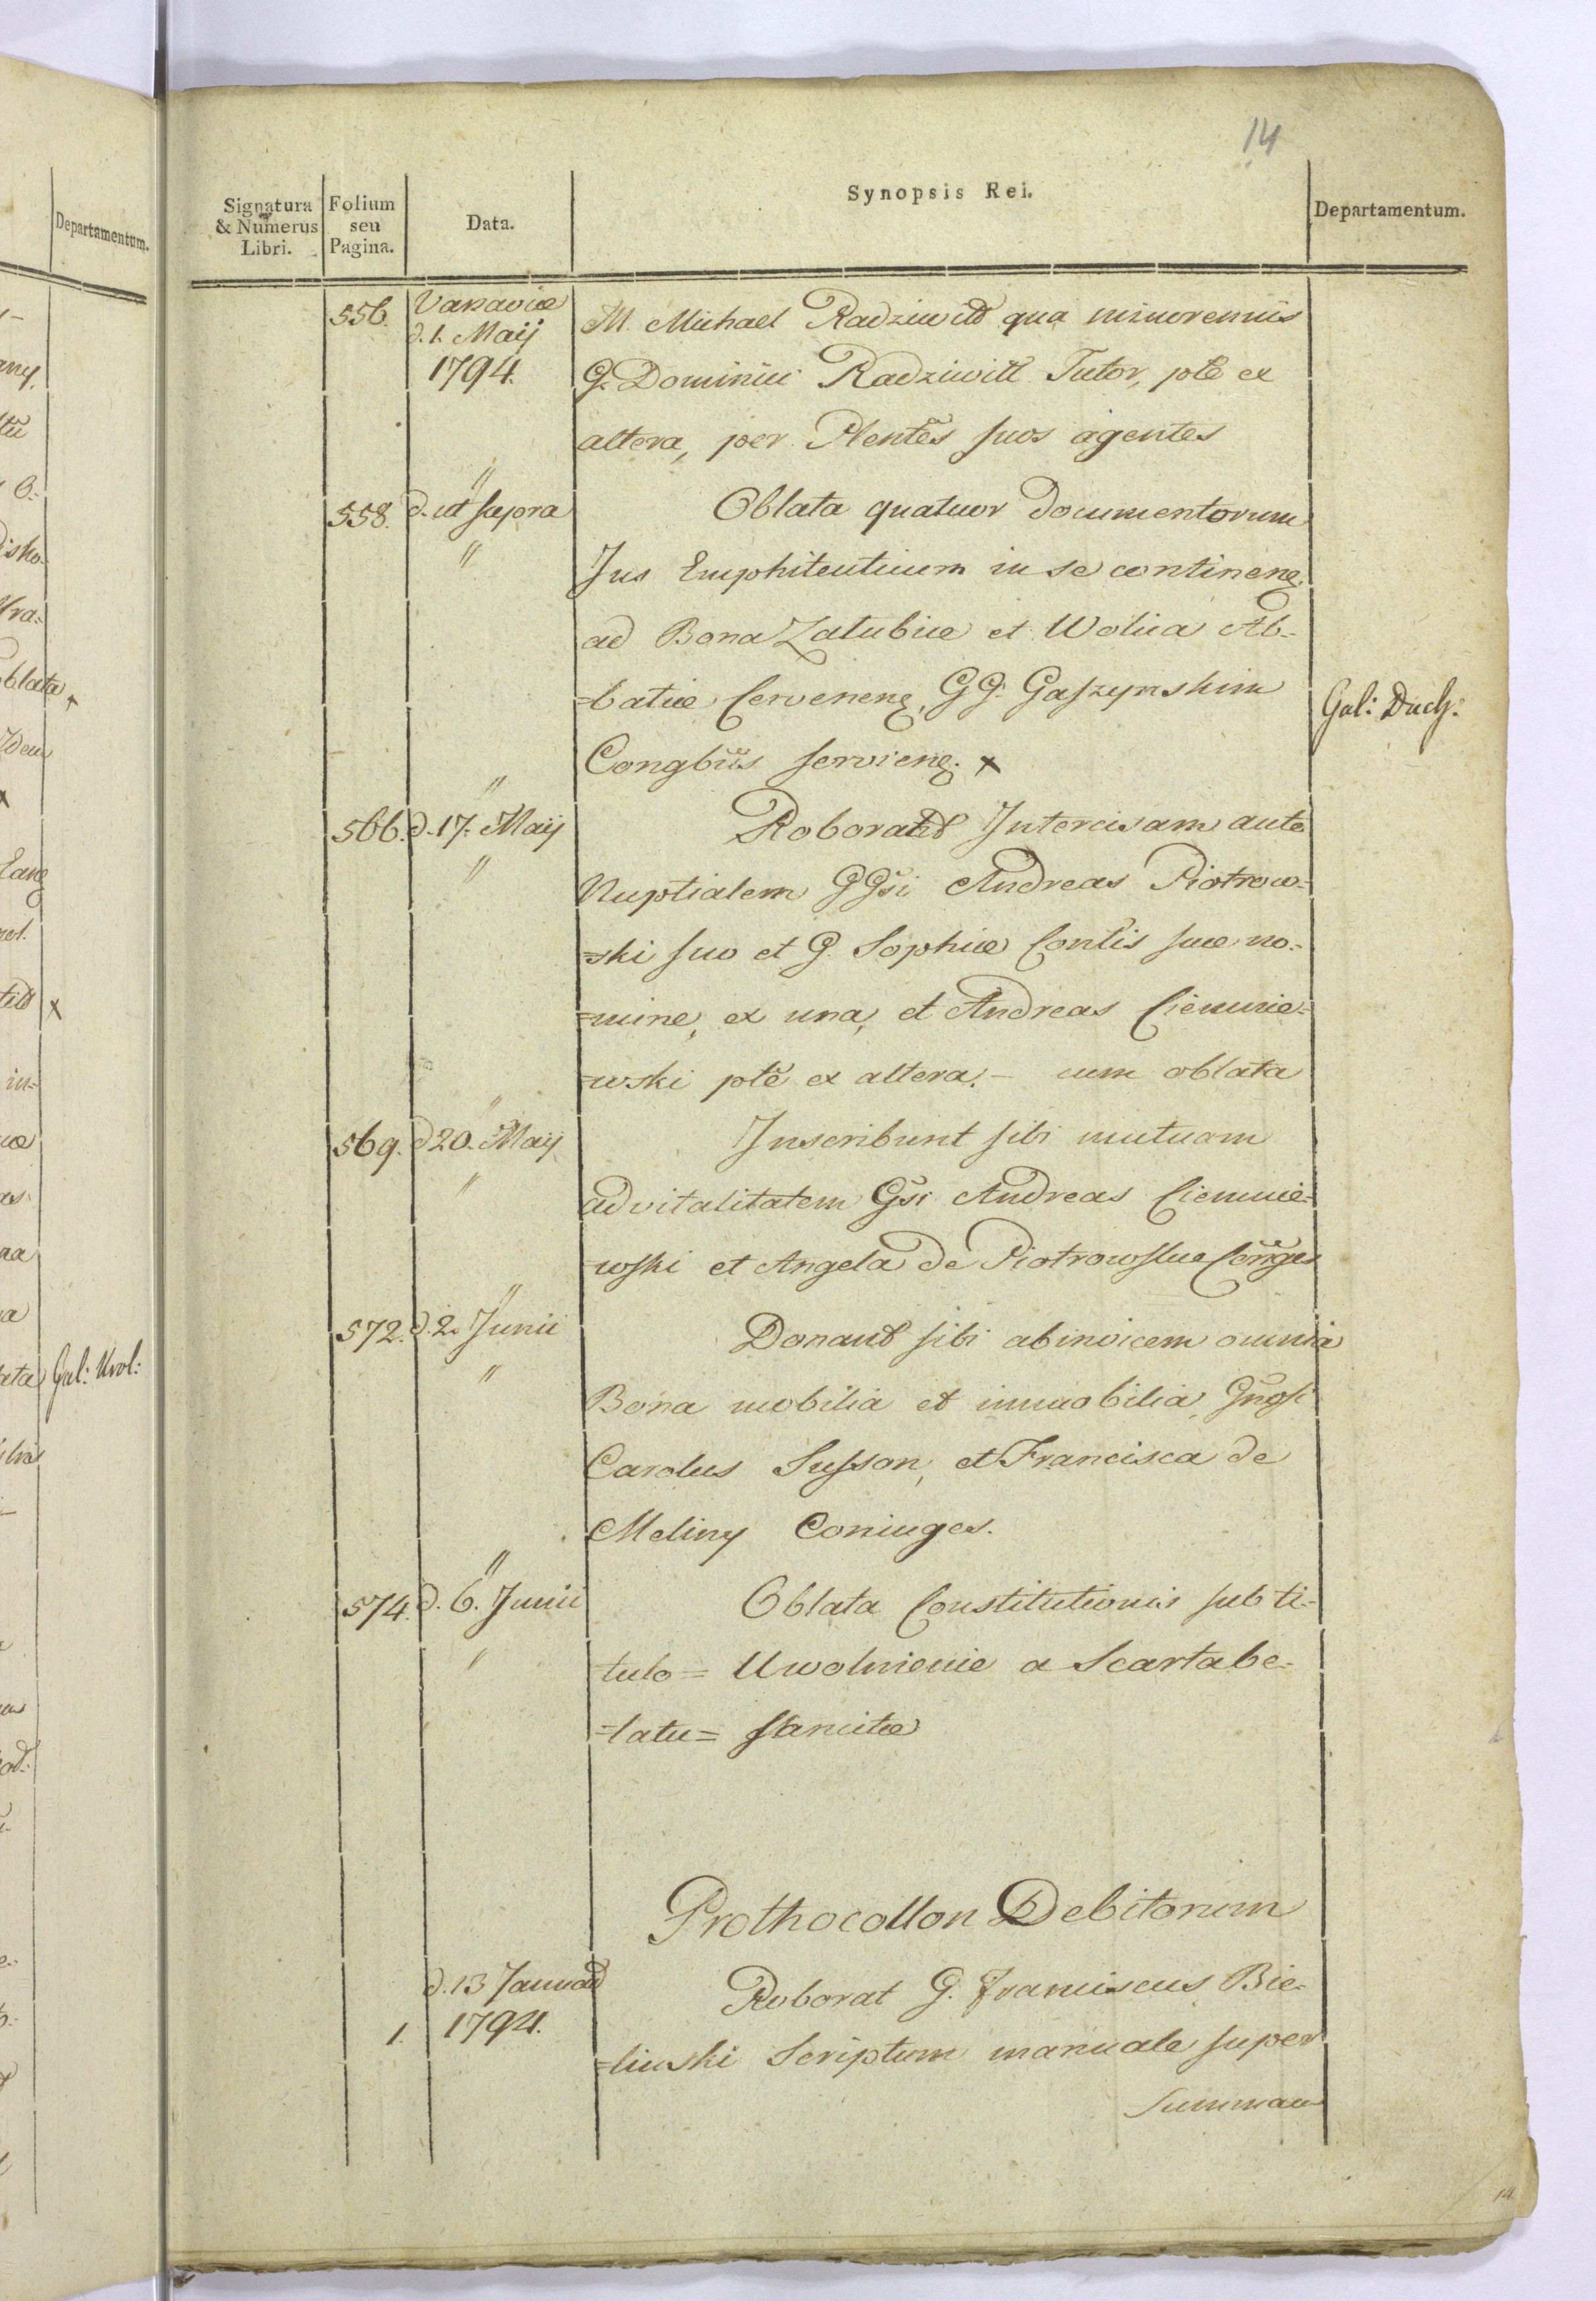 14
Signatura & Numerus Libri.
Folium seu Pagina.
Data.
Synopsis Rei.
Departamentum.
556. Varsaviæ d. 1. Maij 1794.
M. Michael Radziwiłł qua minorennis
G. Dominici Radziwiłł Tutor, pte ex
altera, per Plentes suos agentes
558. d. ut supra
Oblata quatuor Documentorum
Jus Emphiteuticum in se continen.
ad Bona Załubice et Wolica Ab-
=batiæ Cervenen. GG. Gaszynskim
Gal: Duch:
Congbus servien. x
566. d. 17. Maij
Roborant Intercisam ante
Nuptialem GGsi Andreas Piotrow=
=ski suo et G. Sophiæ Contis suæ no=
=mine, ex una, et Andreas Ciemnie=
=wski pte ex altera. – cum oblata
569. d 20. Maij
Inscribunt sibi mutuam
advitalitatem Gsi Andreas Ciemnie=
=wski et Angela de Piotrowskie Conges
572. d. 2. Junii
Donant sibi abinvicem omnia
Bona mobilia et immobilia, Gnosi
Carolus Susson, et Francisca de
Meliny Coniuges.
574. d. 6. Junii
Oblata Constitutionis sub ti=
=tulo = Uwolnienie a Scartabe=
=latu = sancitæ
Prothocollon Debitorum
1. d. 13 Januarii 1794.
Roborat G. Franciscus Bie=
=linski Scriptum manuale super
Summam
14